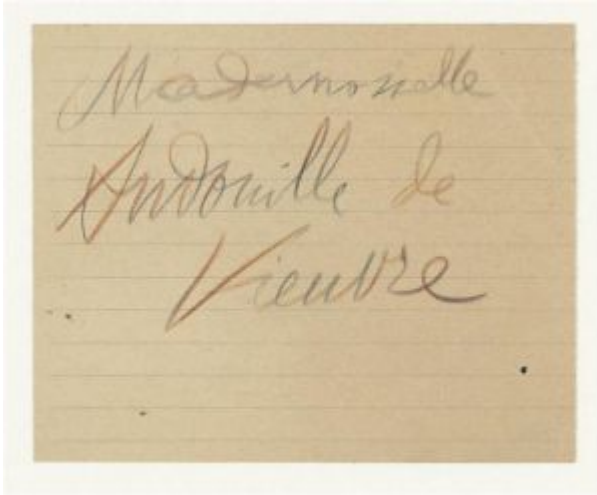 Mademoiselle
Andouille de
Vieuvre